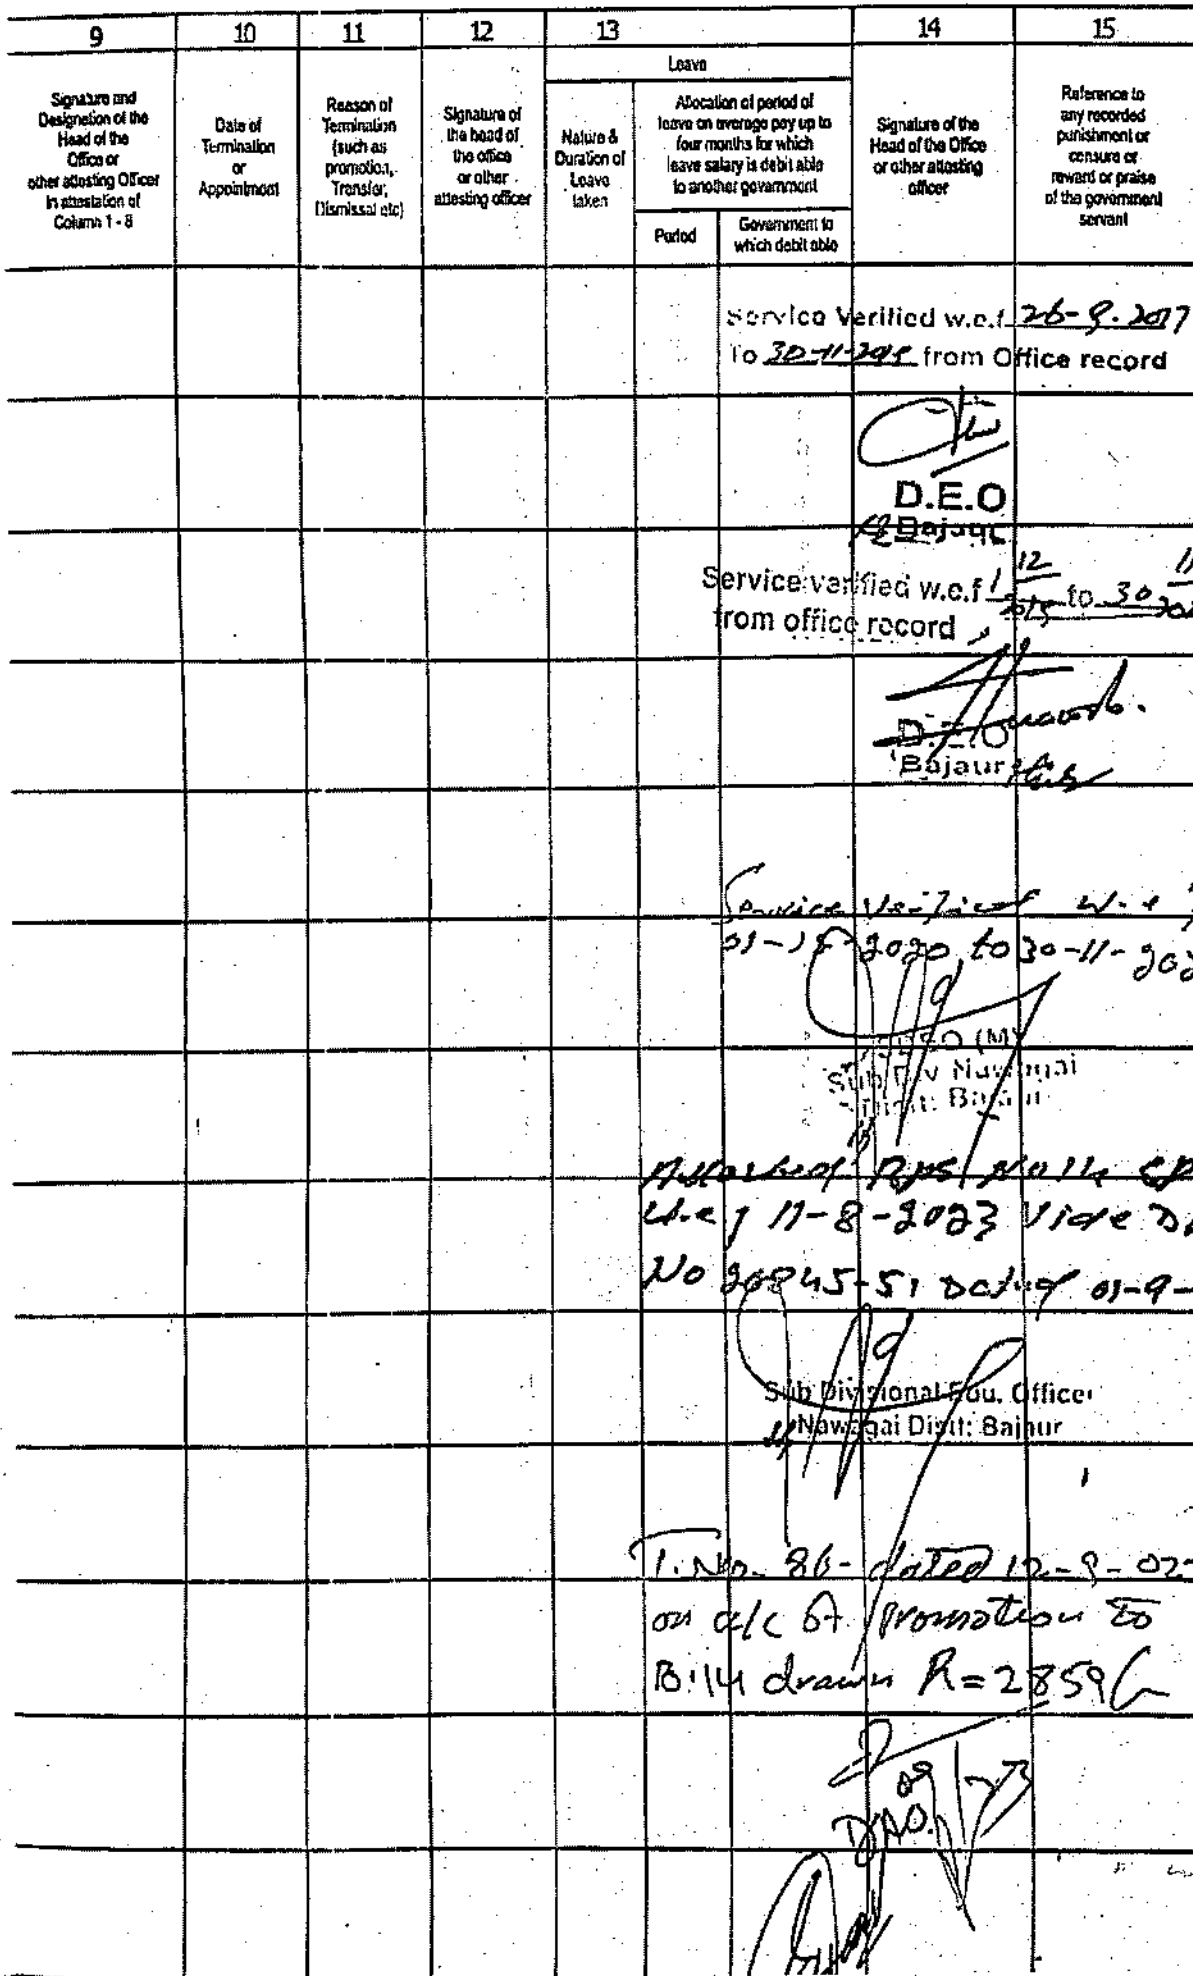 9 10 11 12 13 14 15
Leave
Signature and
Designation of the
Head of the
Office or
other attesting Officer
in attestation of
Column 1 - 8
Date of
Termination
or
Appointment
Reason of
Termination
(such as
promotion,
Transfer,
Dismissal etc)
Signature of
the head of
the office
or other
attesting officer
Nature &
Duration of
Leave
taken
Allocation of period of
leave on average pay up to
four months for which
leave salary is debit able
to another government
Period
Government to
which debit able
Signature of the
Head of the Office
or other attesting
officer
Reference to
any recorded
punishment or
censure or
reward or praise
of the government
servant
Service Verified w.e.f 26-9-2017
To 30-11- from Office record
D.E.O
Bajaur
Service verified w.e.f 1 12 to 30 11
from office record
D.E.O
Bajaur
Service Verified w.e.f
2020 to 30-11-
SDEO (M)
Sub Div Nawagai
Distt: Bajaur
w.e.f 11-8-2023 Vide
No 20845-51 Dated 01-9-
Sub Divisional Edu. Officer
Nawagai Distt: Bajaur
T.No. 86- dated 12-9-02
on a/c of promotion to
B.14 drawn R=2859
D.A.O.